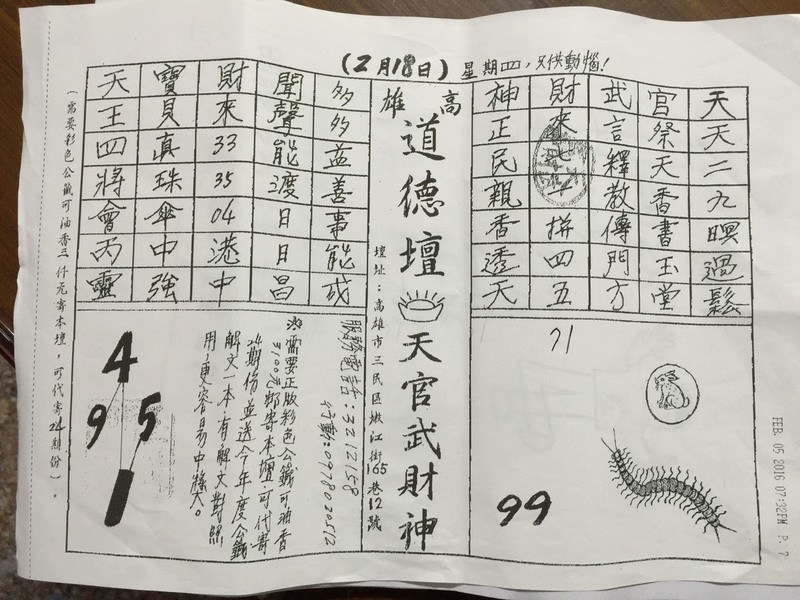 (2月18日) 星期四,只供動惱!
高雄
道德壇天官武財神
壇址:高雄市三民區嫩江街165巷12號
天天二九暝過鬆
官祭天香書玉堂
武言釋教傳門方
財來 拼四五
神正民親香透天
多多益善事能成
聞聲能渡日日昌
財來33 35 04港中
寶貝真珠傘中強
天王四將會丙靈
21
99
服務電話:3212158
行動:0978020512
※需要正版彩色公籤可油香
3100元郵寄本壇可代寄
24期份並送今年度公籤
解文一本,有解文對照
用,更容易中獎大。
4
9 5
1
(需要彩色公籤可油香三仟元寄本壇,可代寄24期份)。
FEB. 05 2016 07:32PM P. 7